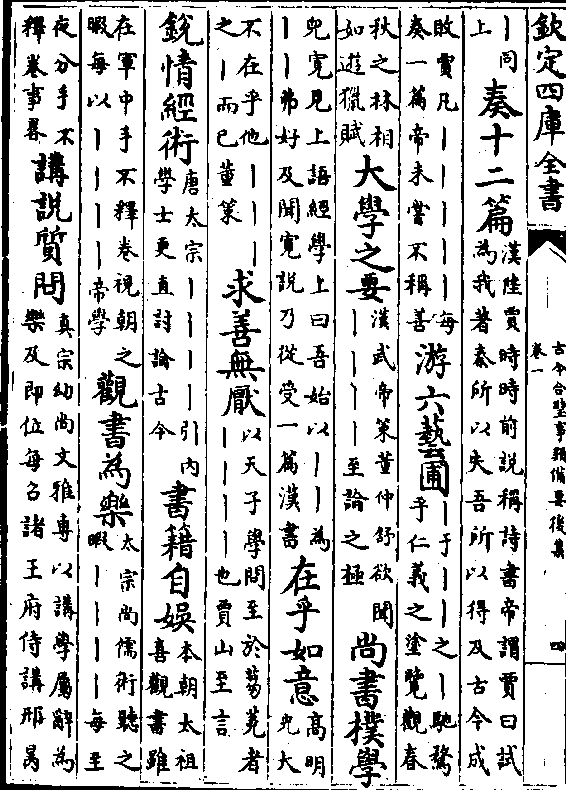 欽定四庫全書
古今合璧事類備要後集
卷一
四
丨同
上
奏十二篇
漢陸賈時時前說稱詩書帝謂賈曰試
為我著秦所以失吾所以得及古今成
敗賈凡丨丨丨丨丨每
奏一篇帝未嘗不稱善
游六藝圃
丨于丨丨之丨馳騖
乎仁義之塗覽觀春
秋之林相
如遊獵賦
大學之要
漢武帝策董仲舒欲聞
丨丨丨丨至論之極
尚書樸學
兒寛見上語經學上曰吾始以丨丨為
丨丨弗好及聞寛說乃從受一篇漢書
在乎如意
高明
光大
不在乎他丨丨丨
之丨而已董策
求善無厭
以天子學問至於芻蕘者
丨丨丨丨也賈山至言
銳情經術
唐太宗丨丨丨丨引內
學士更直討論古今
書籍自娛
本朝太祖
喜觀書雖
在軍中手不釋卷視朝之
暇每以丨丨丨丨帝學
觀書為樂
太宗尚儒術聽之
暇丨丨丨丨每至
夜分手不
釋卷事畧
講說質問
真宗幼尚文雅專以講學屬辭為
樂及即位每召諸王府侍講邢昺